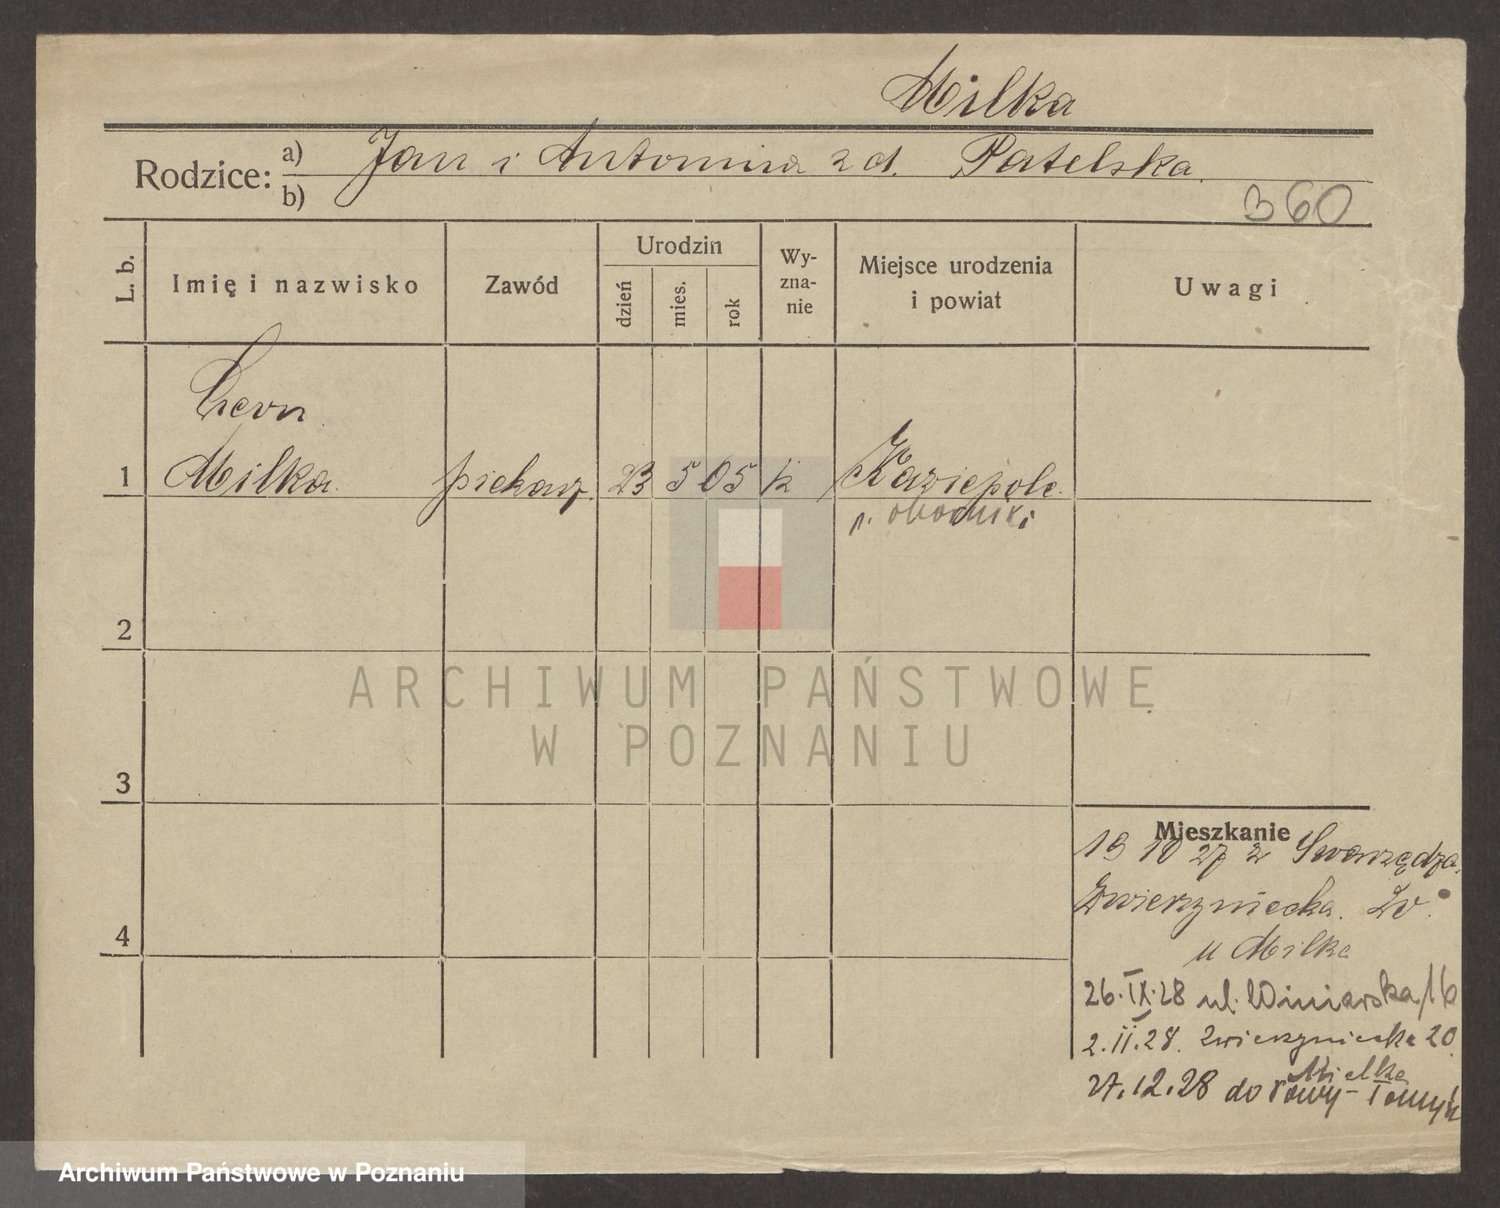 Milka
Rodzice: a) Jan i Antonina z d. Patelska.
b)
360
L. b.
Imię i nazwisko
Zawód
Urodzin
dzień
mies.
rok
Wy-
zna-
nie
Miejsce urodzenia
i powiat
Uwagi
Leon
1 Milka piekarz 23 5 05 k Kaziopole
p. oborniki
2
3
4
Mieszkanie
19 10 27 z Swarzędza
Zwierzyniecka. 20.
u Milka
26.IX.28 ul. Winiarska 16
2.II.28. Zwierzyniecka 20
Mielke
27.12.28 do Nowy-Tomyśl
ARCHIWUM PAŃSTWOWE
W POZNANIU
Archiwum Państwowe w Poznaniu